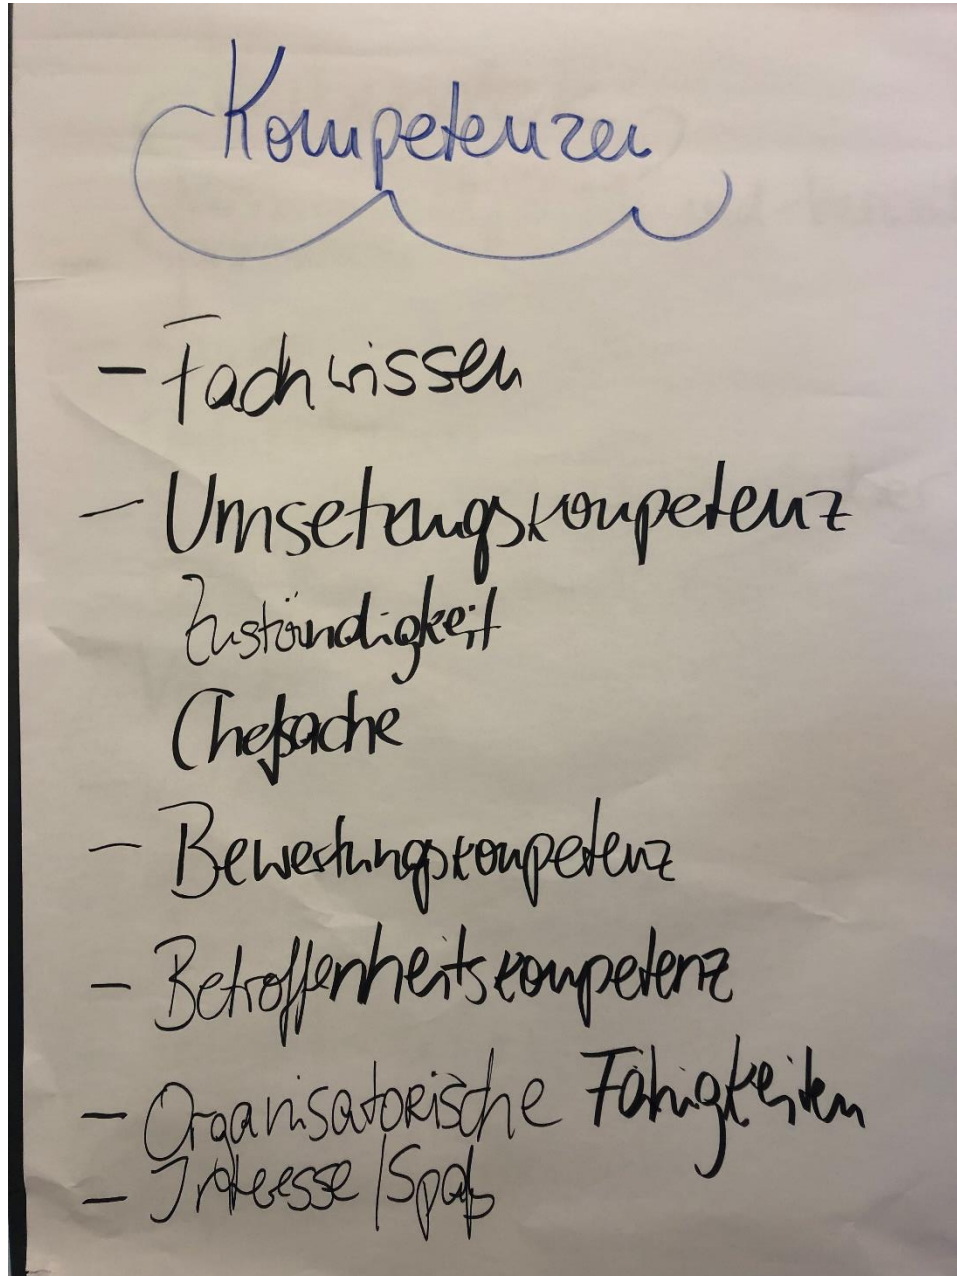 Kompetenzen
- Fachwissen
- Umsetzungskompetenz
Zuständigkeit
Chefsache
- Bewertungskompetenz
- Betroffenheitskompetenz
- Organisatorische Fähigkeiten
- Interesse/Spaß